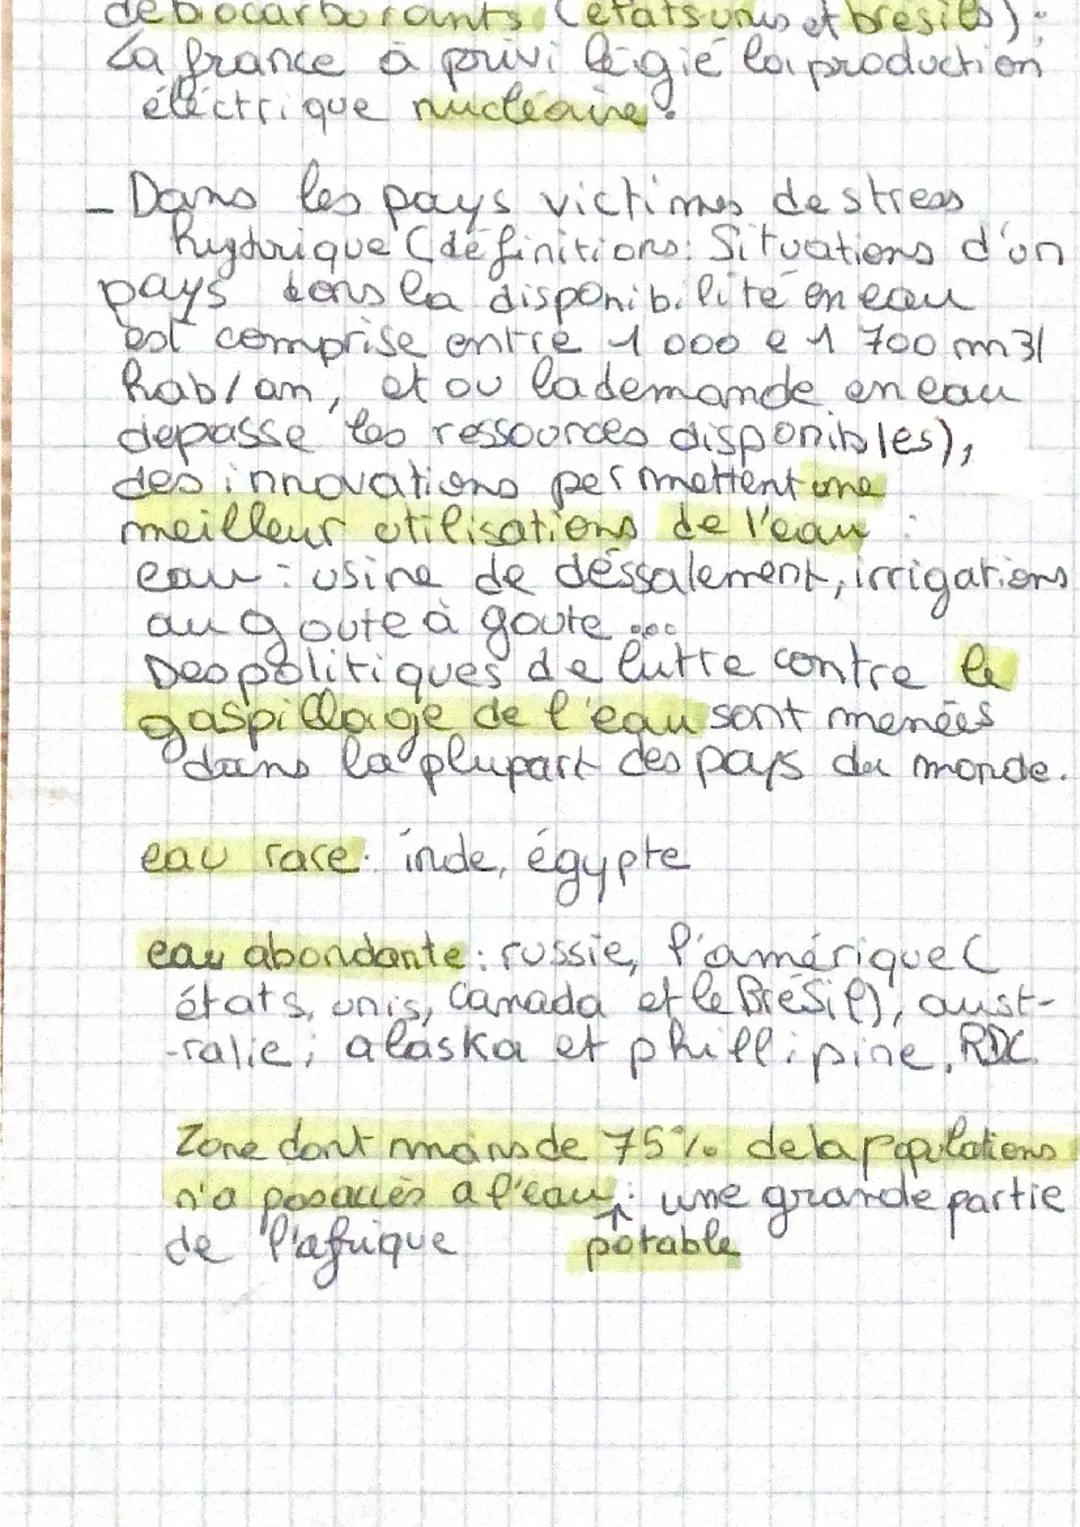 de biocarburants (états unis et brésils).
La france à privilégié la production
éléctrique nucléaire.
- Dans les pays victimes de stress
hydrique (définitions: Situations d'un
pays dons la disponibilité en eau
est comprise entre 1 000 e 1 700 m3/
hab/an, et ou la demande en eau
depasse les ressources disponibles),
des innovations permettent une
meilleur utilisations de l'eau :
eau : usine de déssalement, irrigations
au goute à goute ...
Des politiques de lutte contre le
gaspillage de l'eau sont menées
dans la plupart des pays du monde.
eau rare : inde, égypte
eau abondante : russie, l'amérique (
états, unis, Canada et le Brésil), aust-
-ralie ; alaska et phillipine, RDC.
Zone dont moins de 75% de la populations
n'a pas accès a l'eau : une grande partie
de l'afrique potable